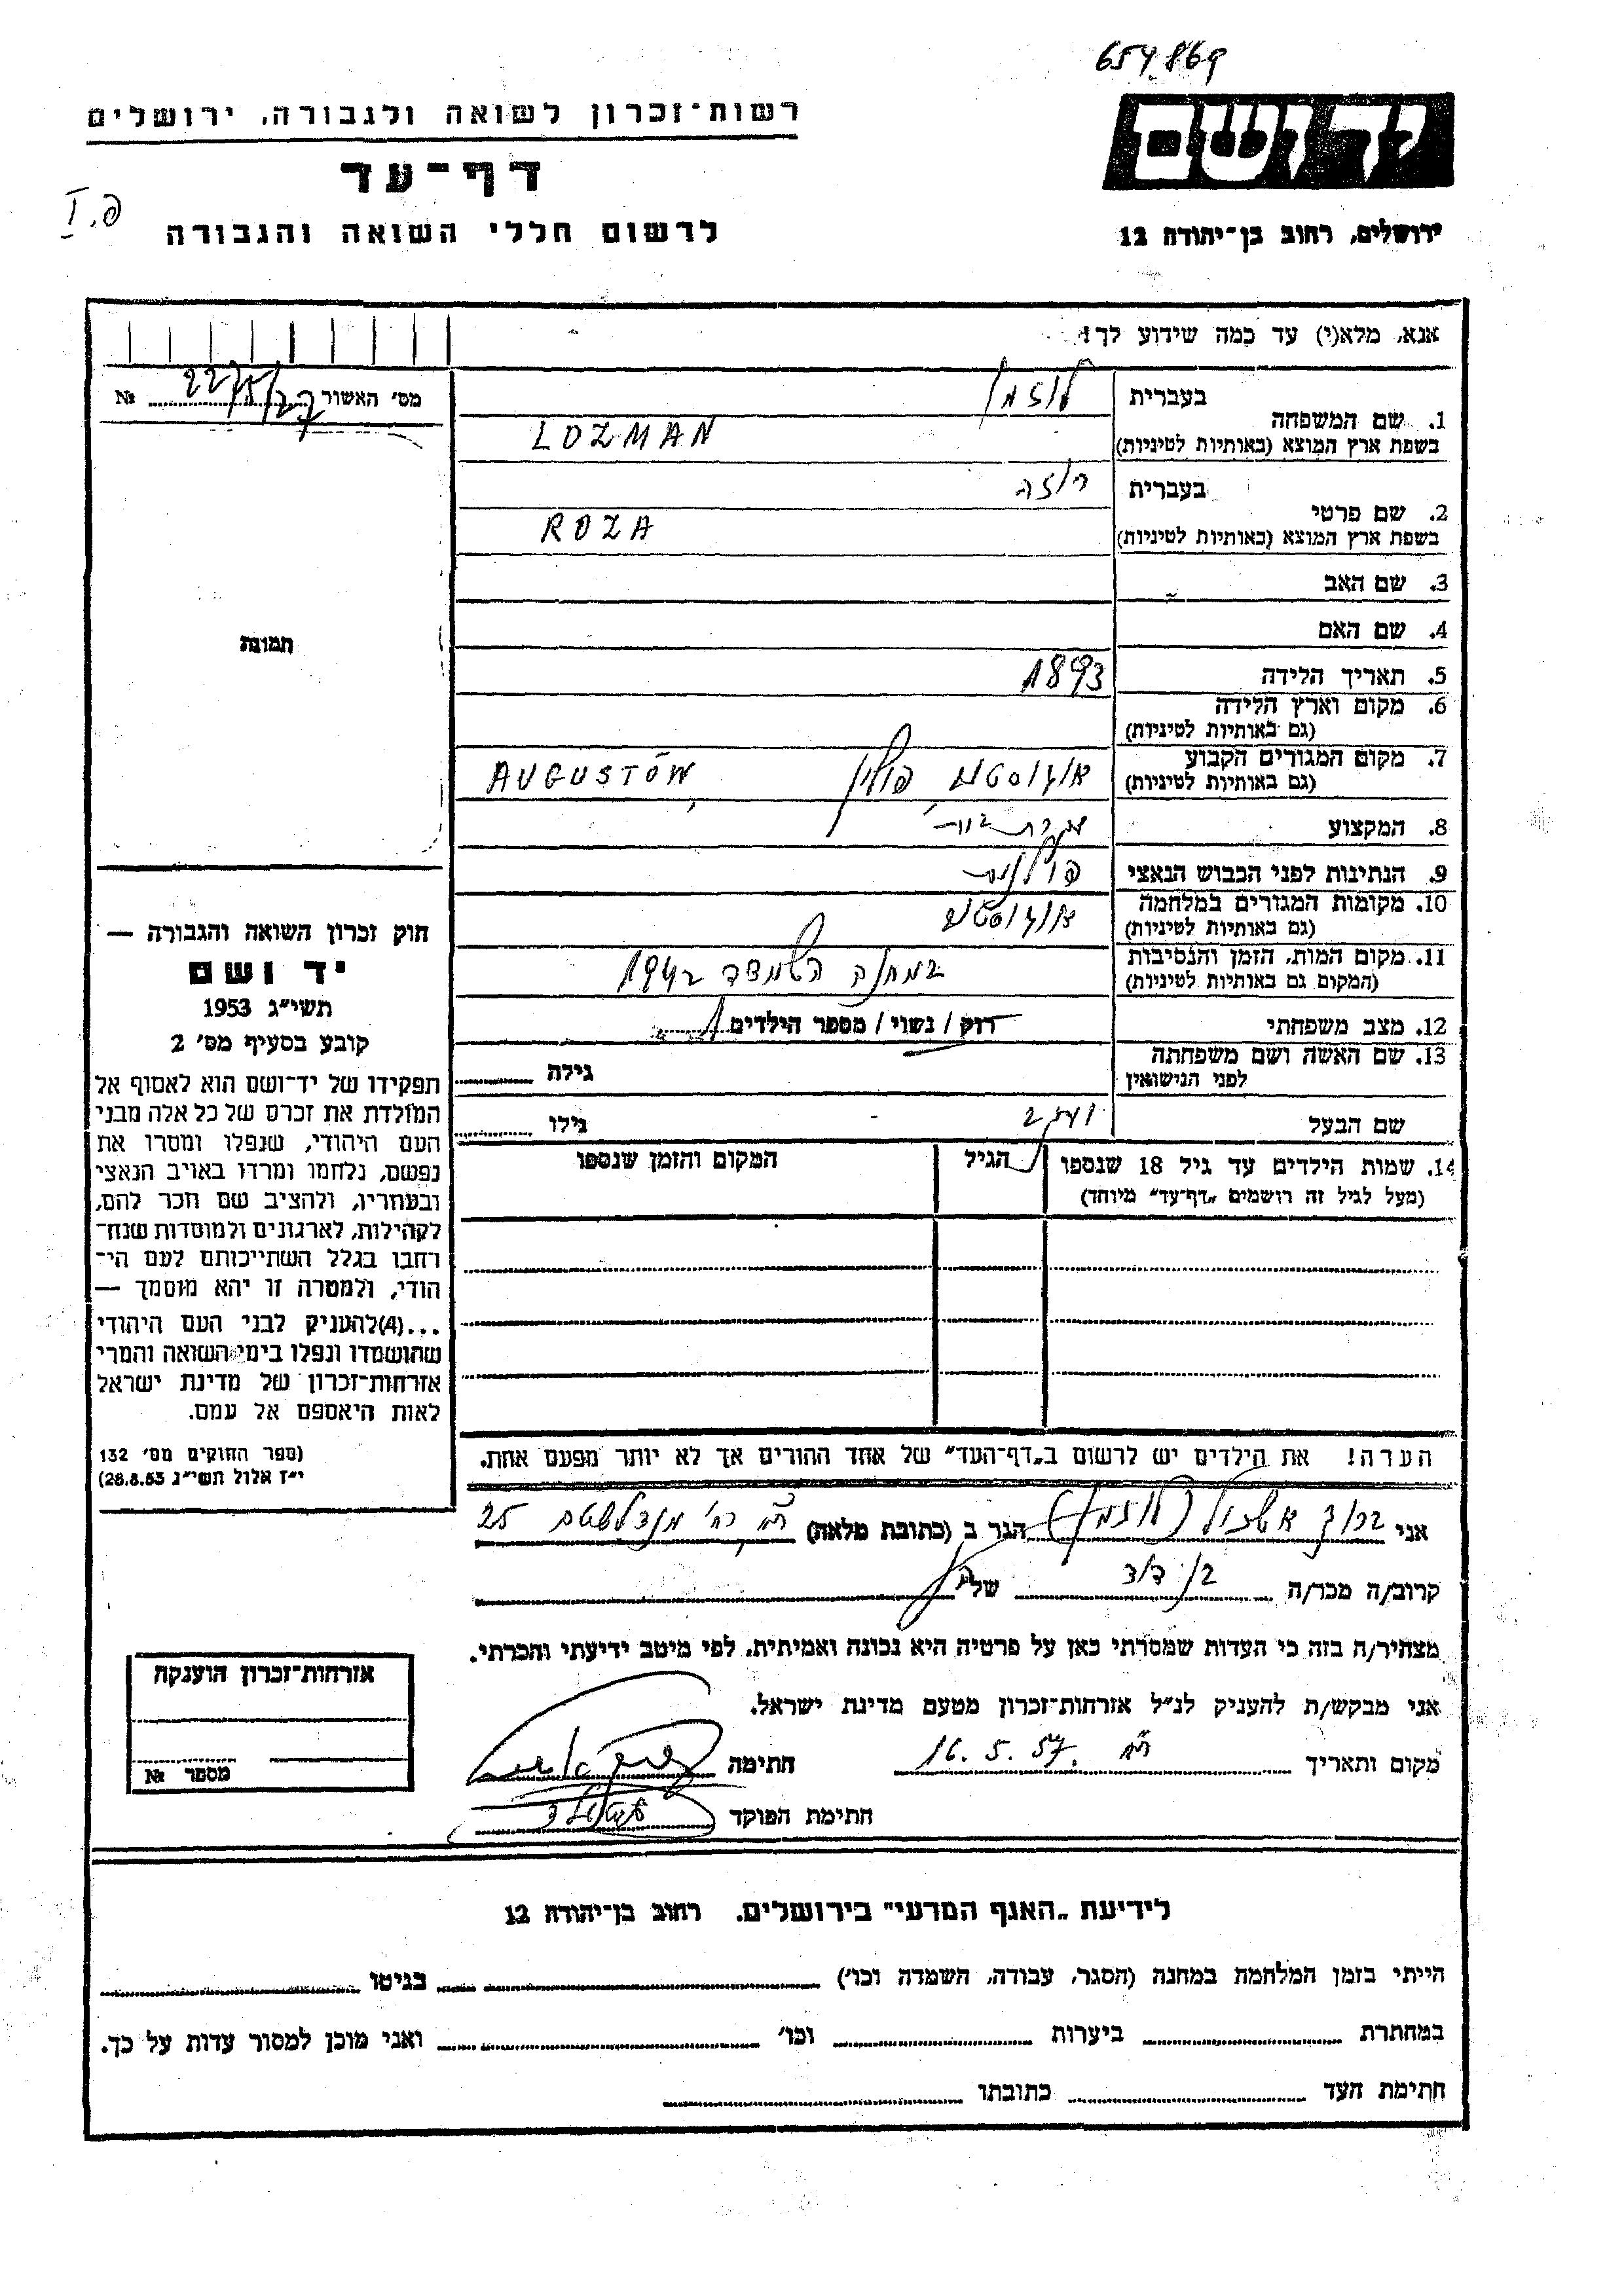 654869
רשות-זכרון לשואה ולגבורה, ירושלים
דף-עד
לרשום חללי השואה והגבורה
יד ושם
ירושלים, רחוב בן-יהודה 12
אנא, מלא(י) עד כמה שידוע לך!
מס' האשור №
1. שם המשפחה בעברית לוזמן
בשפת ארץ המוצא (באותיות לטיניות) LOZMAN
2. שם פרטי בעברית רוזה
בשפת ארץ המוצא (באותיות לטיניות) ROZA
3. שם האב
4. שם האם
5. תאריך הלידה 1893
6. מקום וארץ הלידה
(גם באותיות לטיניות)
7. מקום המגורים הקבוע אוגוסטוב, פולין AUGUSTÓW
(גם באותיות לטיניות)
8. המקצוע עקרת בית
9. הנתינות לפני הכבוש הנאצי פולנית
10. מקומות המגורים במלחמה אוגוסטוב
(גם באותיות לטיניות)
11. מקום המות, הזמן והנסיבות במחנה השמדה 1942
(המקום גם באותיות לטיניות)
12. מצב משפחתי רוק / נשוי / מספר הילדים 1
13. שם האשה ושם משפחתה גילה
לפני הנישואין
שם הבעל גילו
14. שמות הילדים עד גיל 18 שנספו הגיל המקום והזמן שנספו
(מעל לגיל זה רושמים "דף-עד" מיוחד)
הערה! את הילדים יש לרשום ב"דף-העד" של אחד ההורים אך לא יותר מפעם אחת.
תמונה
חוק זכרון השואה והגבורה —
יד ושם
תשי"ג 1953
קובע בסעיף מס' 2
תפקידו של יד-ושם הוא לאסוף אל
המולדת את זכרם של כל אלה מבני
העם היהודי, שנפלו ומסרו את
נפשם, נלחמו ומרדו באויב הנאצי
ובעוזריו, ולהציב שם וזכר להם,
לקהילות, לארגונים ולמוסדות שנח-
רבו בגלל השתייכותם לעם הי-
הודי, ולמטרה זו יהא מוסמך —
...(4)להעניק לבני העם היהודי
שהושמדו ונפלו בימי השואה והמרי
אזרחות-זכרון של מדינת ישראל
לאות היאספם אל עמם.
(ספר החוקים מס' 132
י"ז אלול תשי"ג 28.8.53)
אני ברוך אשכול (לוזמן) הגר ב (כתובת מלאה) ת"א רח' מנדלשטם 25
קרוב/ה מכר/ה בן דוד של
מצהיר/ה בזה כי העדות שמסרתי כאן על פרטיה היא נכונה ואמיתית, לפי מיטב ידיעתי והכרתי.
אני מבקש/ת להעניק לנ"ל אזרחות-זכרון מטעם מדינת ישראל.
מקום ותאריך ת"א 16.5.57. חתימה
חתימת הפוקד
אזרחות-זכרון הוענקה
מספר №
לידיעת "האגף המדעי" בירושלים, רחוב בן-יהודה 12
הייתי בזמן המלחמה במחנה (הסגר, עבודה, השמדה וכו') בגיטו
במחתרת ביערות וכו' ואני מוכן למסור עדות על כך.
חתימת העד כתובתו